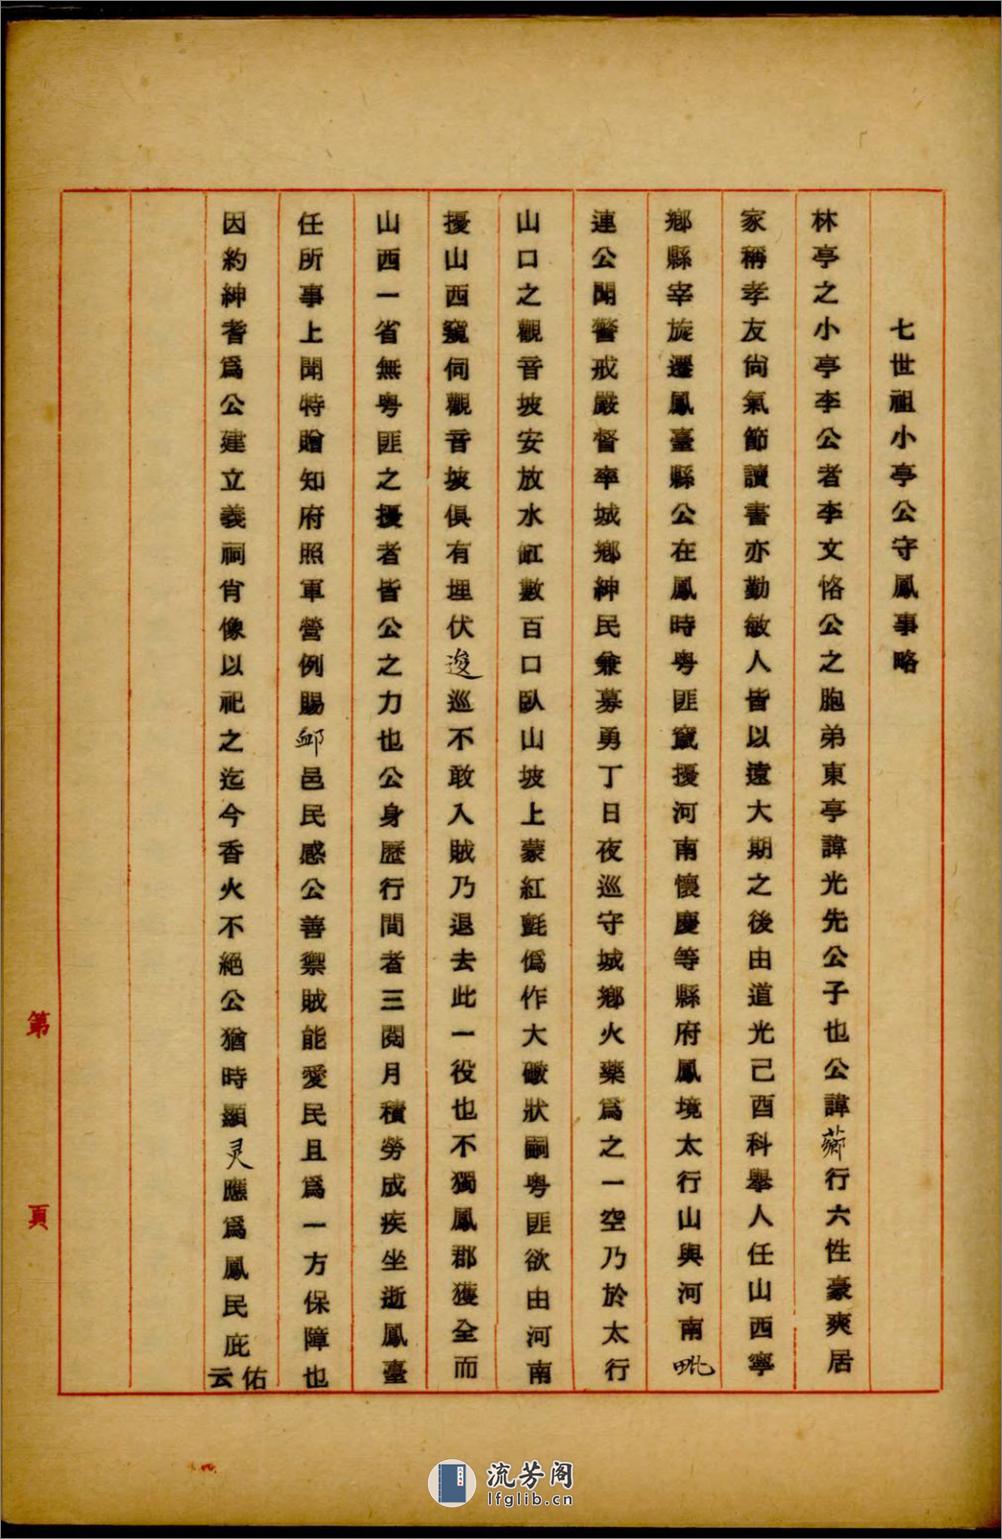 七世祖小亭公守鳳事略
林亭之小亭李公者李文恪公之胞弟東亭諱光先公子也公諱薌行六性豪爽居
家稱孝友尙氣節讀書亦勤敏人皆以遠大期之後由道光己酉科舉人任山西寧
鄉縣宰旋遷鳳臺縣公在鳳時粤匪竄擾河南懷慶等縣府鳳境太行山與河南毗
連公聞警戒嚴督率城鄉紳民兼募勇丁日夜巡守城鄉火藥爲之一空乃於太行
山口之觀音坡安放水缸數百口臥山坡上蒙紅氈僞作大礮狀嗣粤匪欲由河南
擾山西窺伺觀音坡俱有埋伏逡巡不敢入賊乃退去此一役也不獨鳳郡獲全而
山西一省無粤匪之擾者皆公之力也公身歷行間者三閱月積勞成疾坐逝鳳臺
任所事上聞特贈知府照軍營例賜卹邑民感公善禦賊能愛民且爲一方保障也
因約紳耆爲公建立義祠肖像以祀之迄今香火不絕公猶時顯灵應爲鳳民庇佑云
第 頁
流芳阁
lfglib.cn